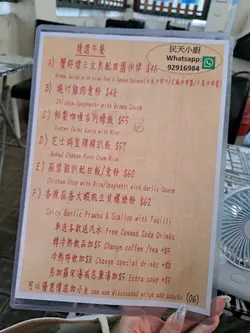 特選午餐
民天小廚
Whatsapp:
92916984
A) 蟹籽煙三文魚配田園沙律 $46
B) 燒汁雞肉意粉 $48
Chicken Spaghetti with Brown Sauce
C) 秘製咖喱吉列豬飯 $55
Sauce Curry with Rice
D) 芝士焗豬扒飯 $57
Baked Cheese Pork Chop Rice
E) 蒜蓉雞扒配白飯/意粉 $60
Chicken Chop with Rice/Spaghetti with Garlic Sauce
F) 香辣蒜香大蝦帆立貝螺絲粉 $62
Spicy Garlic Prawns & Scallop with Fusilli
奉送各款汽水 Free Canned Soda Drinks
轉冷熱飲品加$5 Change coffee /tea +$5
冷熱特飲加$8 Change special drinks +$8
另加羅宋湯或忌廉湯加$5 Extra soup +$5
可以優惠價追加小食 can use discounted price add snacks
(06)